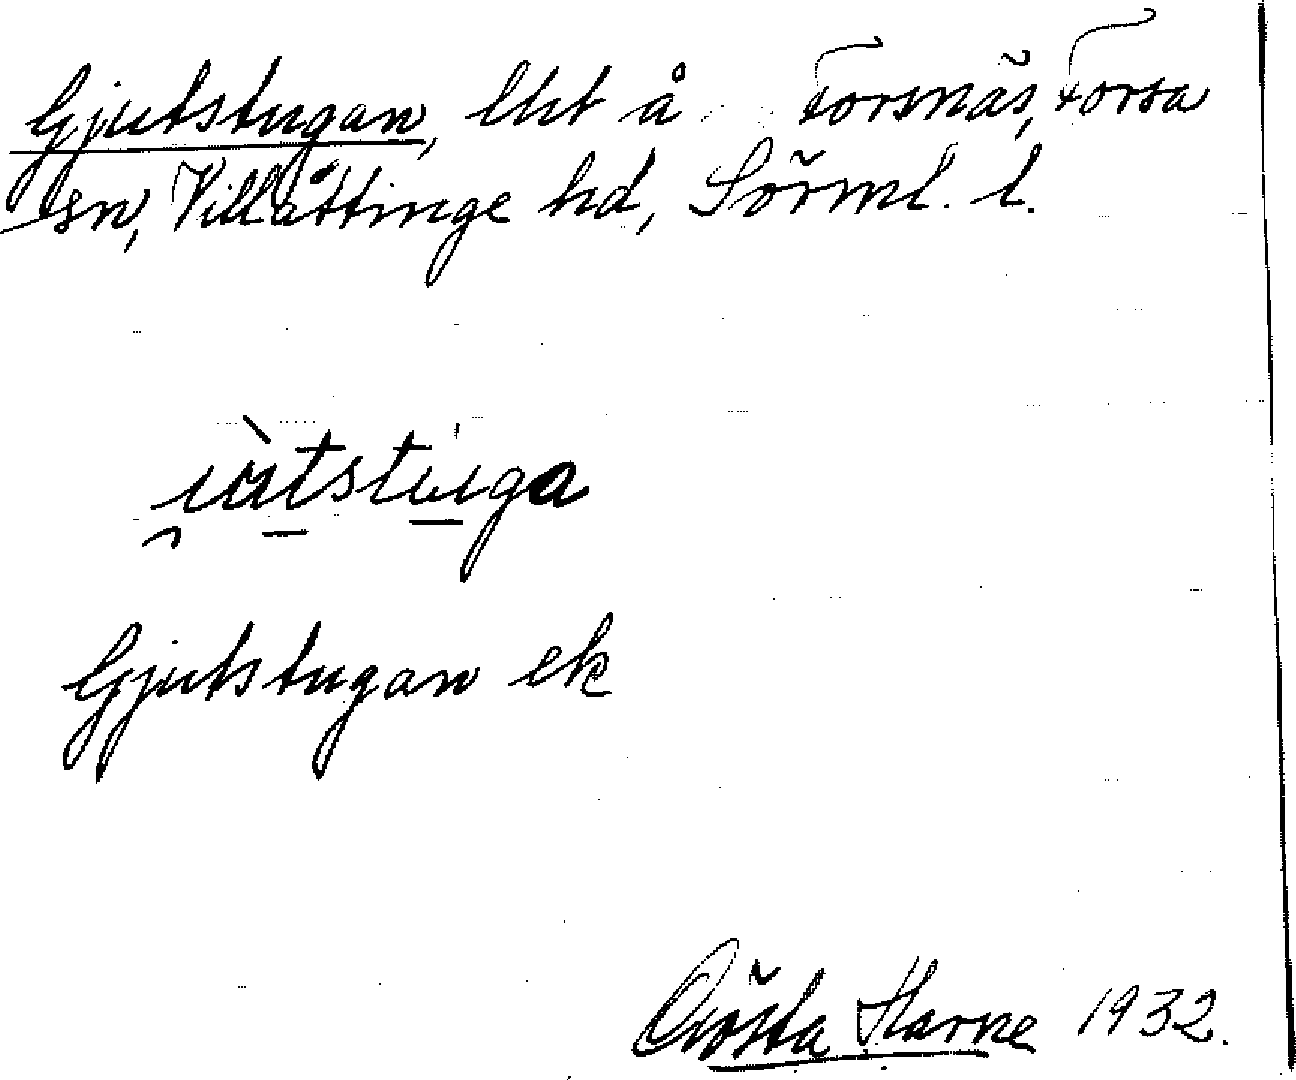 Gjutstugan, lht å Forsnäs, Forsa
sn, Villåttinge hd, Sörml. l.
Gjutstugan ek
Gösta Harne 1932.